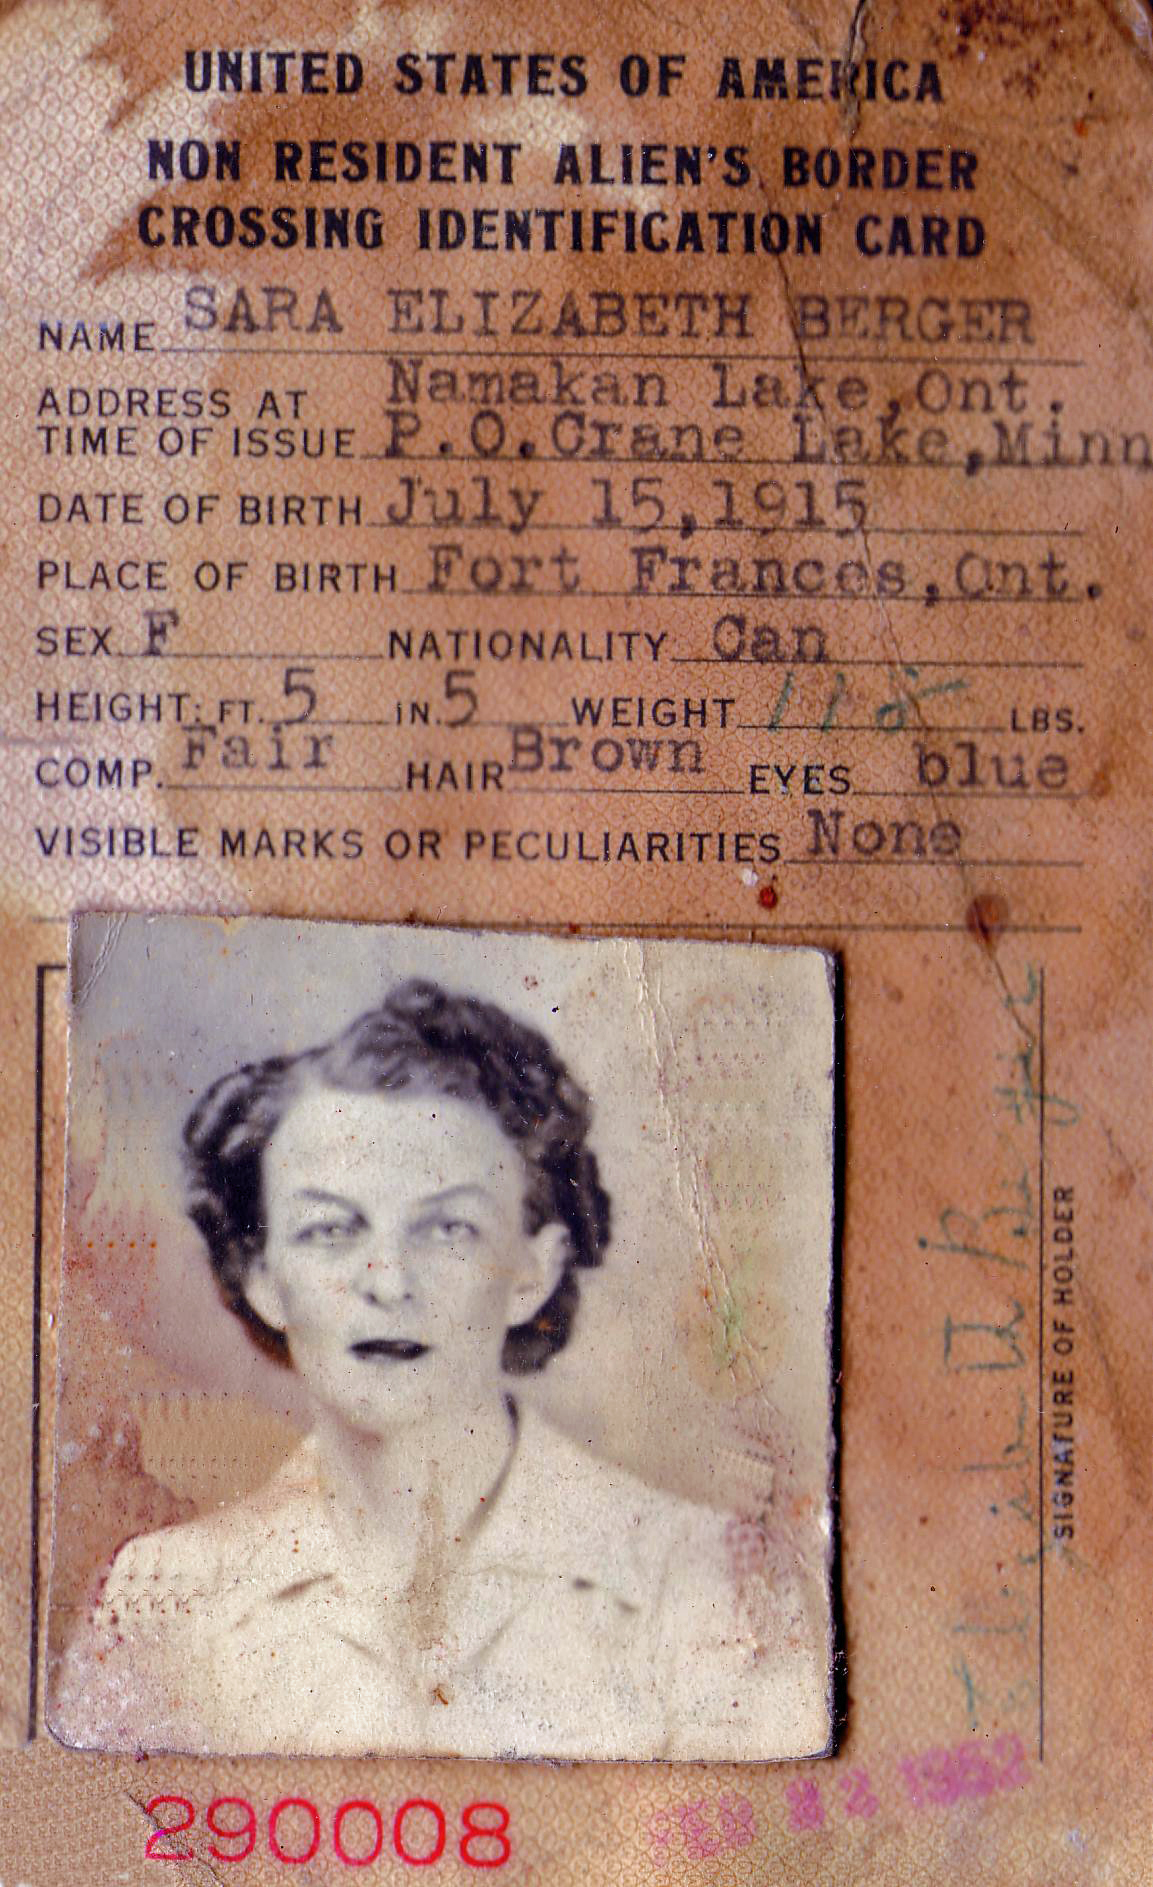 UNITED STATES OF AMERICA
NON RESIDENT ALIEN'S BORDER
CROSSING IDENTIFICATION CARD
NAME SARA ELIZABETH BERGER
ADDRESS AT Namakan Lake,Ont.
TIME OF ISSUE P.O.Crane Lake,Minn
DATE OF BIRTH July 15,1915
PLACE OF BIRTH Fort Frances,Ont.
SEX F NATIONALITY Can
HEIGHT: FT. 5 IN. 5 WEIGHT 115 LBS.
COMP. Fair HAIR Brown EYES blue
VISIBLE MARKS OR PECULIARITIES None
SIGNATURE OF HOLDER
290008
FEB 1952